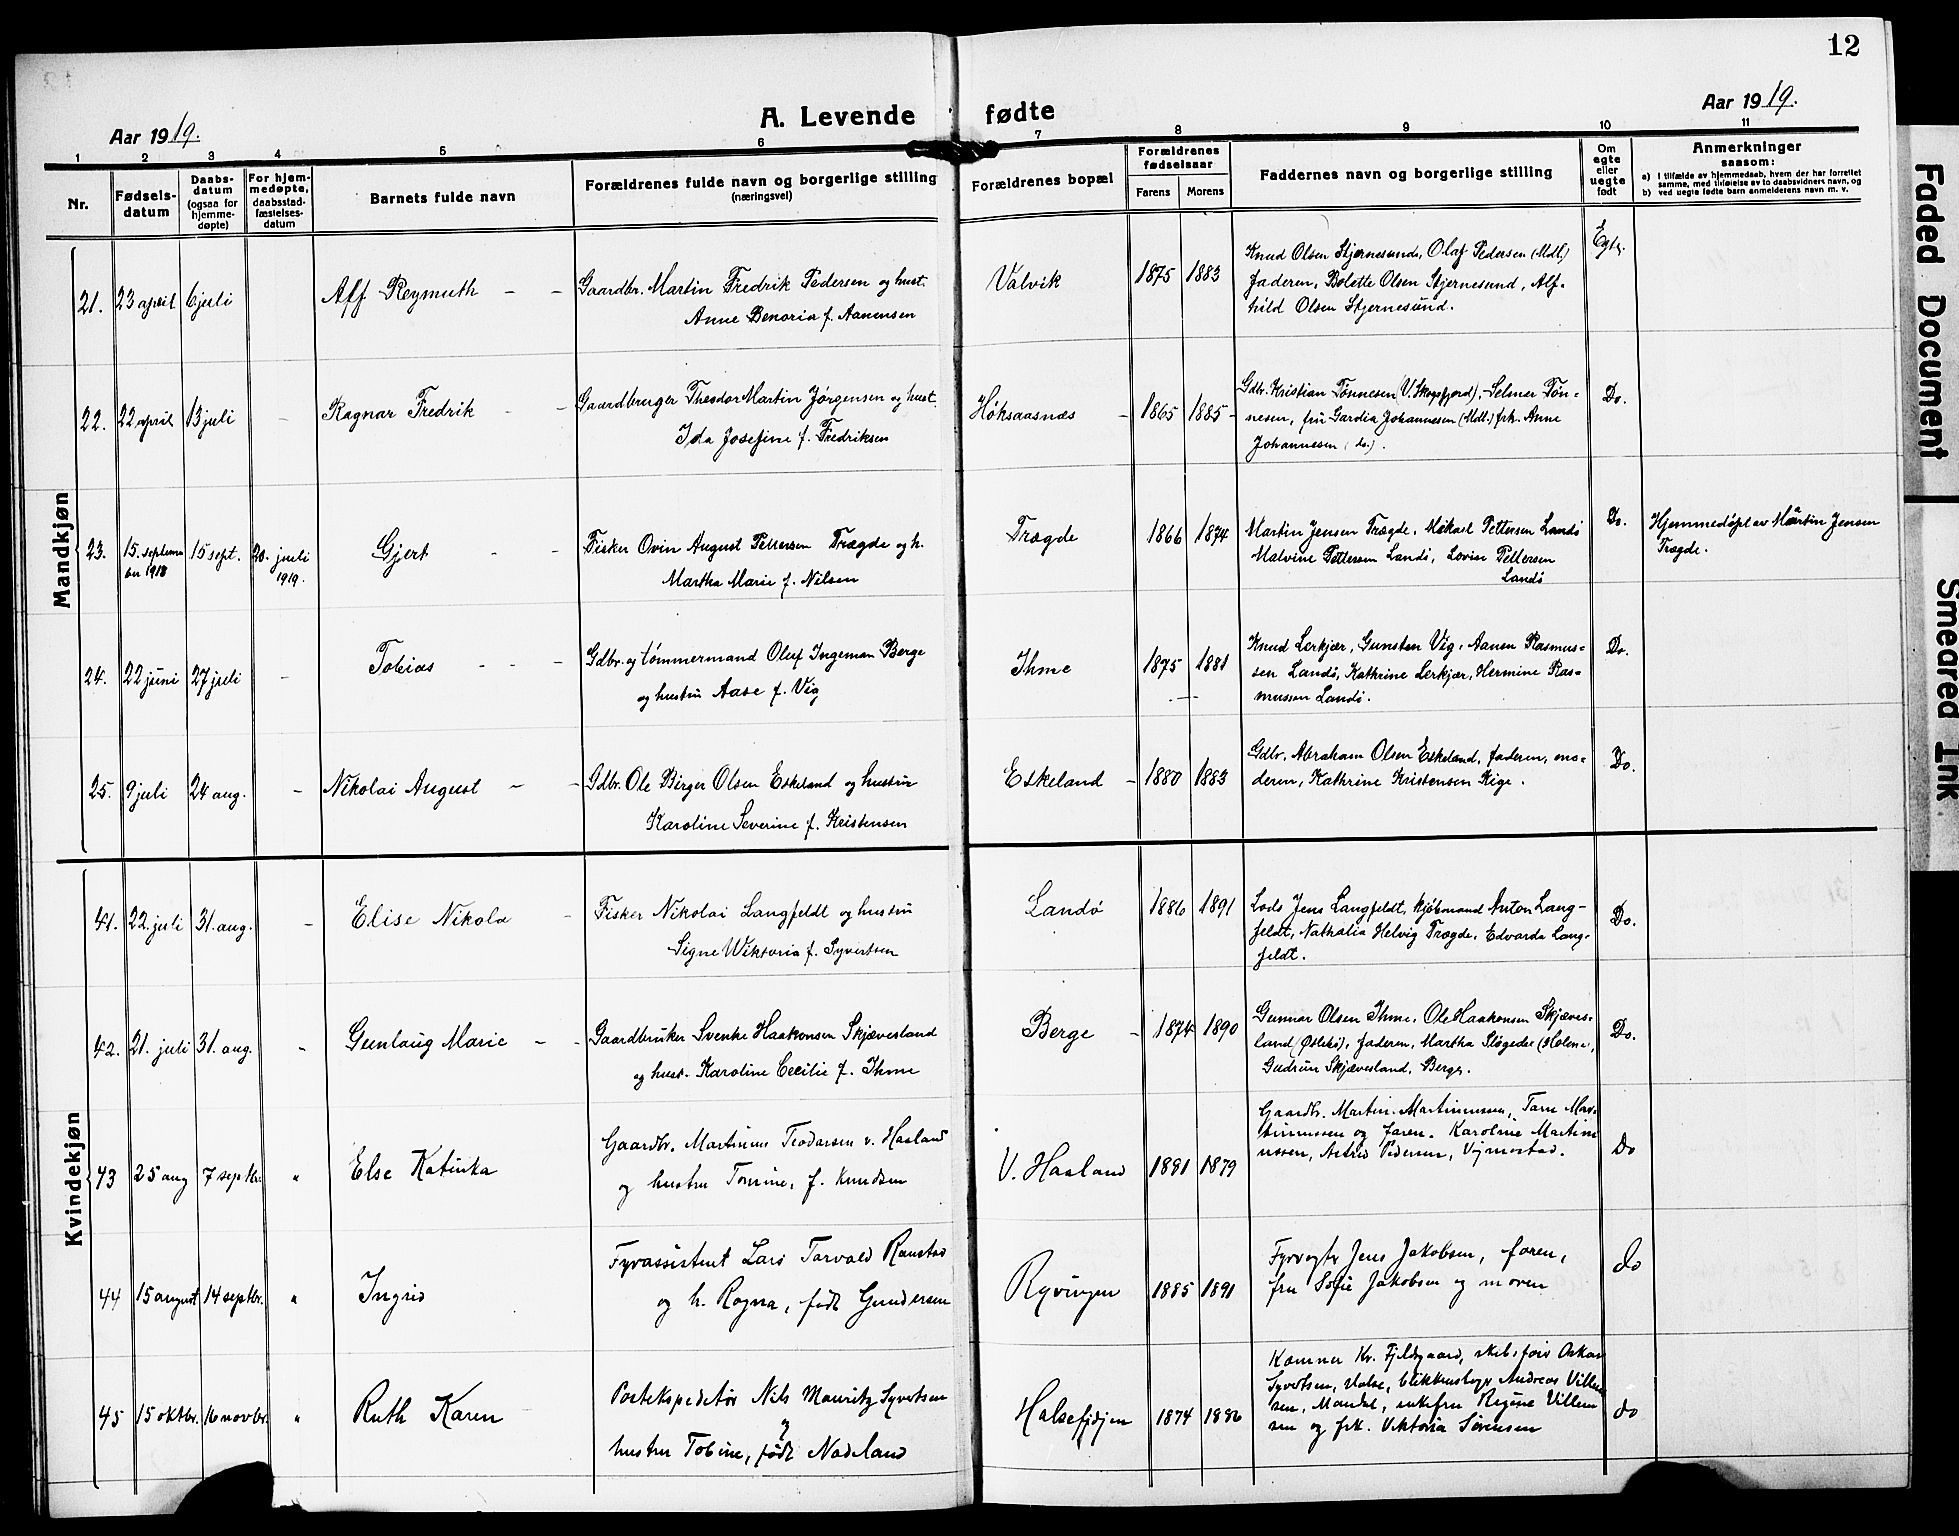 12
Aar 1919.
A. Levende fødte
Aar 1919.
1 2 3 4 5 6 7 8 9 10 11
Nr.
Fødsels-
datum
Daabs-
datum
(ogsaa for
hjemme-
døpte)
For hjem-
medøpte,
daabsstad-
fæstelses-
datum
Barnets fulde navn
Forældrenes fulde navn og borgerlige stilling
(næringsvei)
Forældrenes bopæl
Forældrenes
fødselsaar
Farens Morens
Faddernes navn og borgerlige stilling
Om
egte
eller
uegte
født
Anmerkninger
saasom:
a) I tilfælde av hjemmedaab, hvem der har forrettet
samme, med tilføielse av to daabsvidners navn, og
b) ved uegte fødte barn anmelderens navn m. v.
Mandkjøn
21. 23 april 6 juli Alf Reymuth - -
Gaardbr. Martin Fredrik Pedersen og hust.
Anne Benoria f. Aanensen
Valvik 1875 1883
Knud Olsen Stjernesund, Olaf Pedersen (Mdl.)
faderen, Bolette Olsen Stjernesund, Alf-
hild Olsen Stjernesund.
Egte.
22. 22 april 13 juli - Ragnar Fredrik - -
Gaardbruger Theodor Martin Jørgensen og hust.
Ida Josefine f. Fredriksen
Høksaasnæs - 1865 1885 -
Gdbr. Kristian Tønnesen (V. Skogsfjord), Selmer Tøn-
nesen, fru Gardia Johannesen (Mdl.) frk. Anne
Johannesen (do.).
Do.
23. 15. septem-
ber 1918 15 sept. 20. juli
1919. Gjert - -
Fisker Ovin August Pettersen Trægde og h.
Martha Marie f. Nilsen
Trægde 1866 1874
Martin Jensen Trægde, Mikael Pettersen Landø
Malvine Pettersen Landø, Lovise Pettersen
Landø
Do.
Hjemmedøpt av Martin Jensen
Trægde.
24. 22 juni 27 juli - Tobias - - -
Gdbr. og tømmermand Oluf Ingeman Berge
og hustru Aase f. Vig
Ihme 1875 1881
Knud Lerkjær, Gunsten Vig, Aanen Rasmus-
sen Landø, Kathrine Lerkjær, Hermine Ras-
mussen Landø.
Do.
25. 9 juli 24 aug. - Nikolai August - -
Gdbr. Ole Birger Olsen Eskeland og hustru
Karoline Severine f. Kristensen
Eskeland - 1880 1883
Gdbr. Abraham Olsen Eskeland, faderen, mo-
deren, Kathrine Kristensen Kige.
Do.
Kvindekjøn
41. 22. juli 31. aug. - Elise Nikola -
Fisker Nikolai Langfeldt og hustru
Signe Wiktoria f. Syvertsen
Landø 1886 1891
Lods Jens Langfeldt, kjøbmand Anton Lang-
feldt, Nathalia Helvig Trægde, Edvarda Lang-
feldt.
Do.
42. 21. juli 31. aug. - Gunlaug Marie - -
Gaardbruker Svenke Haakonsen Skjævesland
og hust. Karoline Cecilie f. Ihme
Berge - 1874 1890
Gunnar Olsen Ihme, Ole Haakonsen Skjæves-
land (Østebø), faderen, Martha Sløgedal (Holme),
Gudrun Skjævesland, Berge.
Do.
43 25 aug 7 septbr. " Else Katinka
Gaardbr. Martinius Teodorsen v. Haaland
og hustru Tomine, f. Knudsen
V. Haaland 1881 1879
Gaardbr. Martin Martinussen, Tom Mar-
tinussen og faren. Karoline Martin
ussen, Astrid Pedersen, Vigmostad.
Do
44 15 august 14 septbr. " Ingrid
Fyrassistent Lars Torvald Ranstad
og h. Ragna, født Gundersen
Ryvingen 1885 1891
Fyrvogter Jens Jakobsen, faren,
fru Sofie Jakobsen og moren
do
45 15 oktbr. 16 novbr. " Ruth Karen
Postekspeditør Nils Mauritz Syvertsen
og
hustru Tobine, født Nodeland
Halsefjorden 1874 1886
Kæmner Kr. Fjeldsgaard, skibsfører Oskar
Syvertsen, Halse, blikkenslager Andreas Villum
sen, Mandal, enkefru Regine Villum
sen og frk. Viktoria Sørensen
do
Faded Document
Smeared Ink